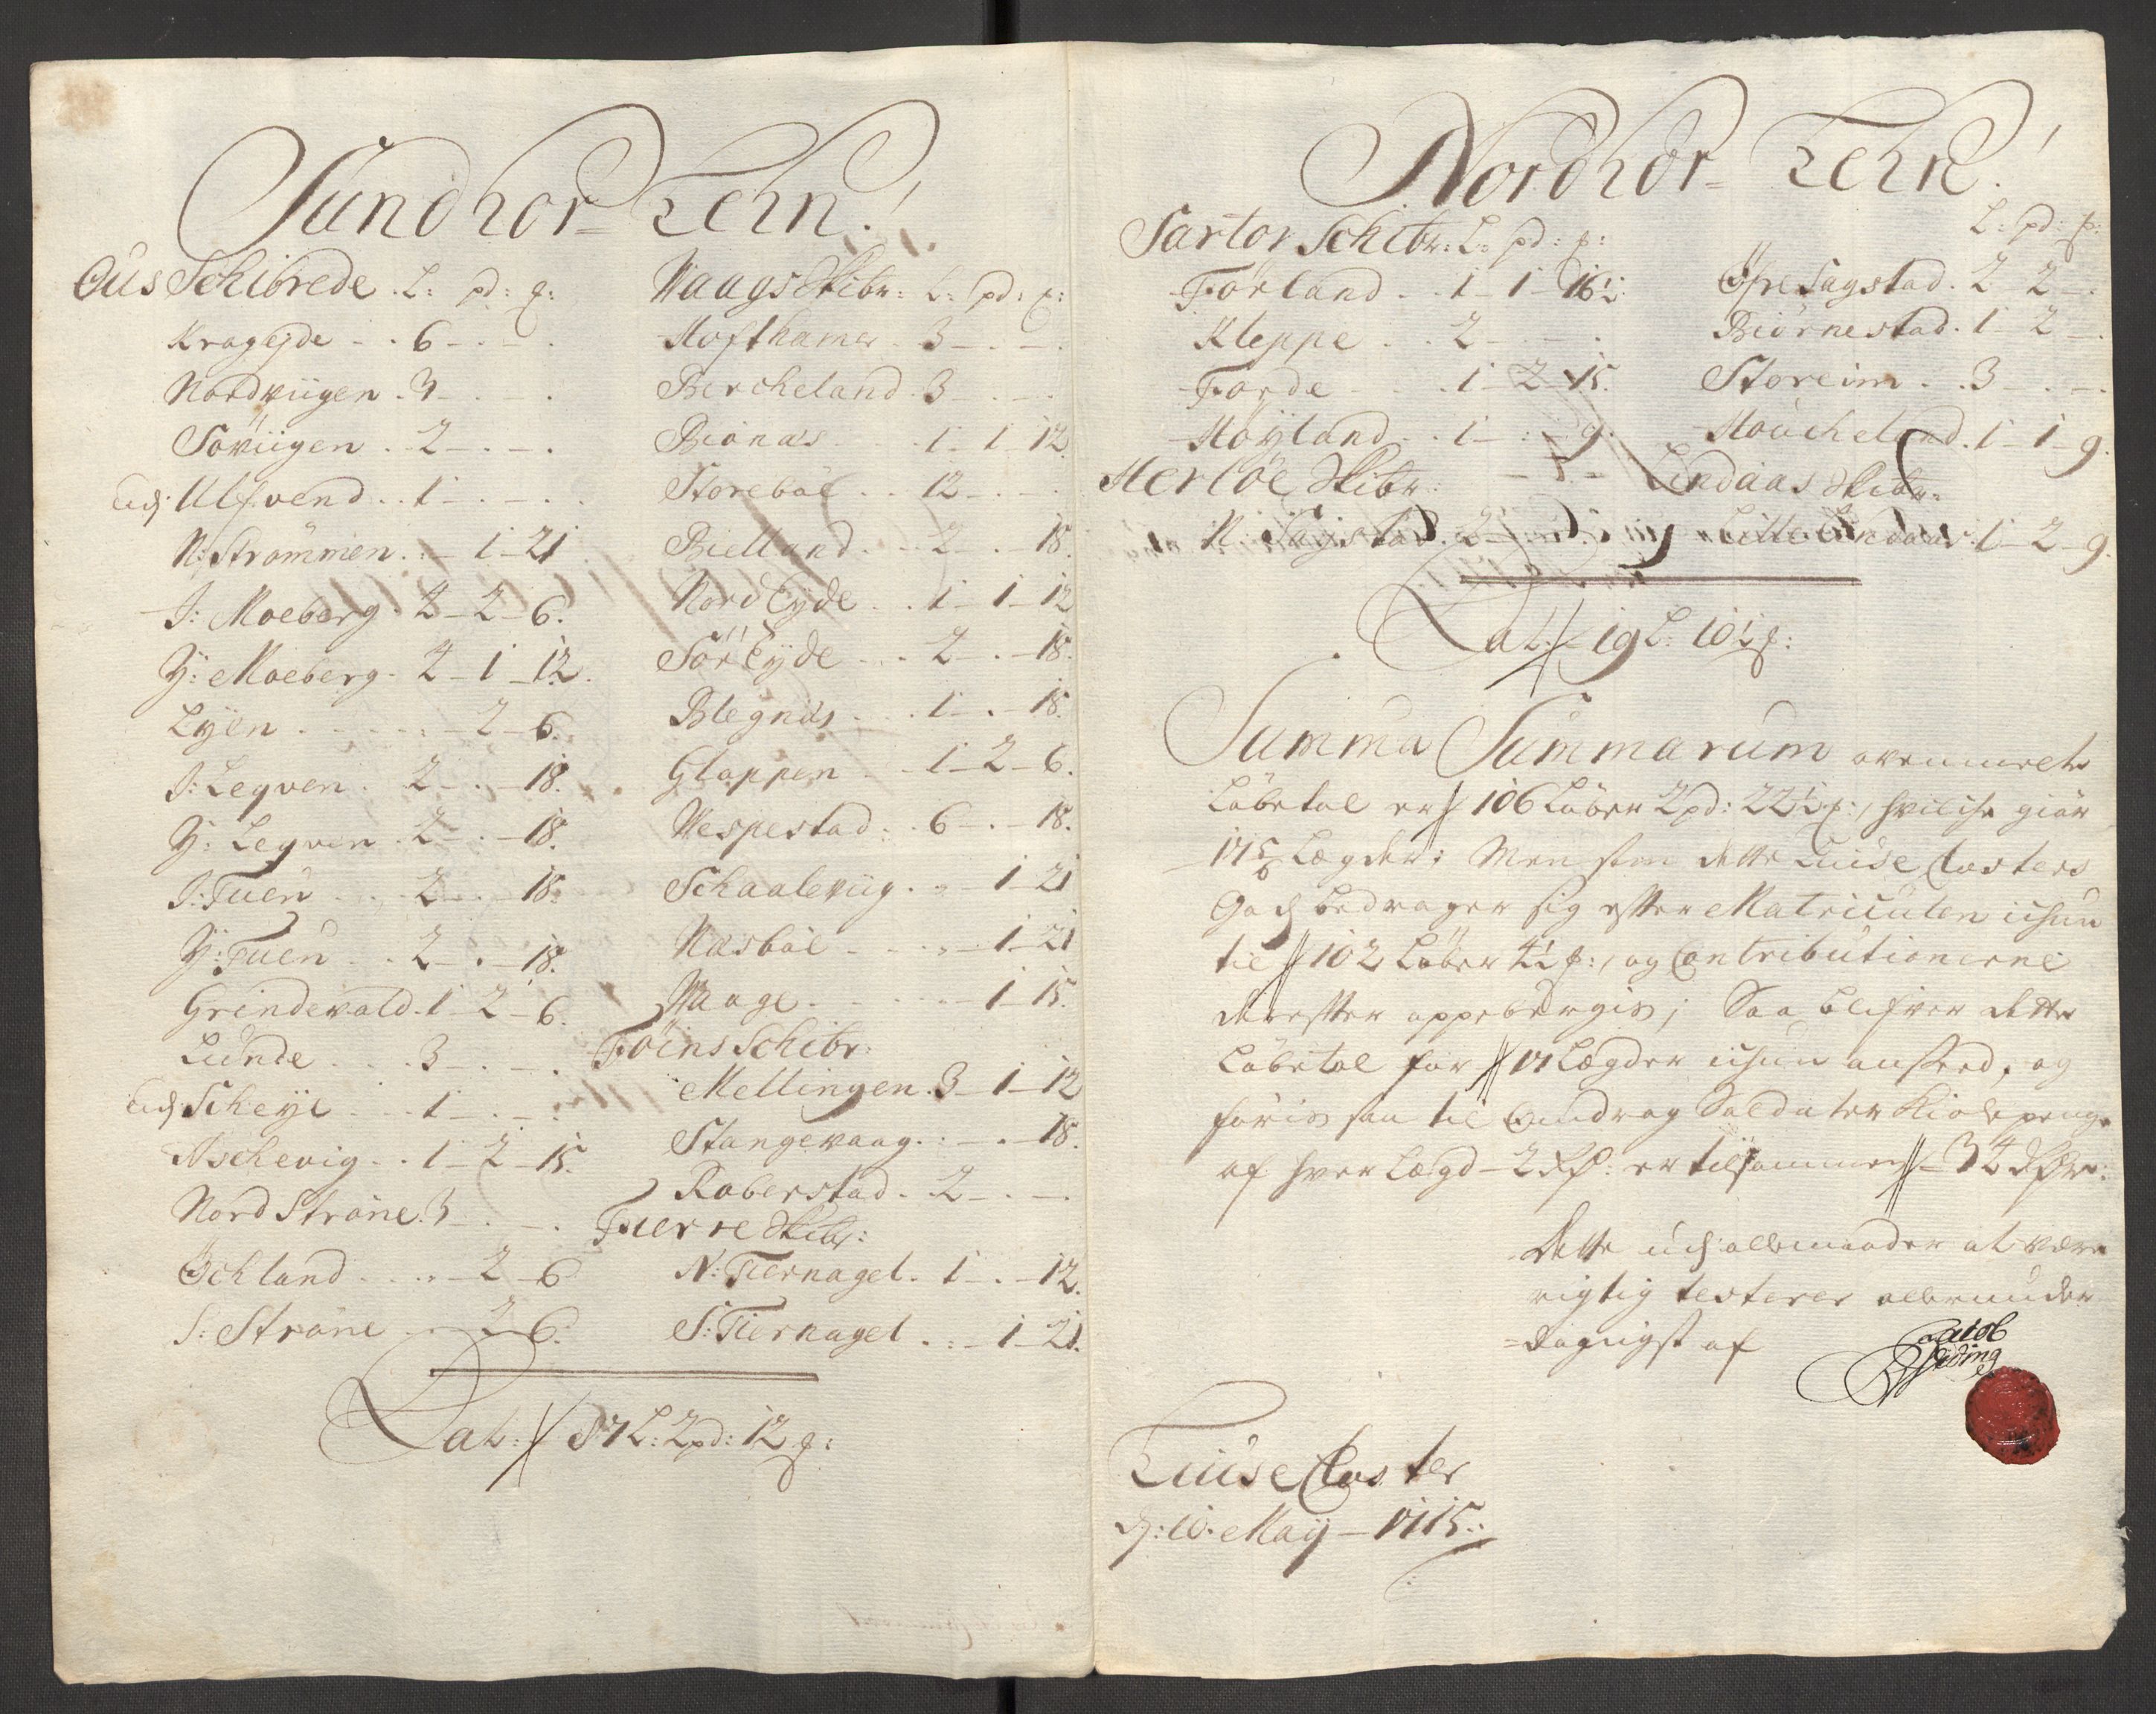 Sundhor- Lehn!
Ous Schibrede. L: pd: ɟ:
Kragejde - . 6 - . - .
Nordviigen . 3 - . - .
Söviigen . 2 - . - .
Ulfvend . . 1 - . - .
N: Strömmen . : - 1 - 21
I: Moeberg . 2 - 2 - 6.
Y: Moeberg . 2 - 1 - 12.
Lyen . . . . . - 2 - 6.
I: Legven . 2 - . - 18.
Y: Legven . 2 - . - 18.
I: Tuen . . 2 - . - 18.
Y: Tuen . . 2 - . - 18.
Grindevold . 1 - 2 - 6.
Lunde . . . 3 - . - .
Scheye . . . 1 - . - .
Aschevig . . 1 - 2 - 15.
Nord Strøne . 3 - . - .
Öchland . . . . - 2 - 6
S: Strøne . . - 2 - 6.
Waags Skibr: L: pd: ɟ:
Hofthamer . 3 - . - .
Bercheland . 3 - . - .
Biönæs . . . 1 - 1 - 12.
Storeböe . . 12 - . - .
Bielland . . . 2 - . - 18.
Nord Eyde . . 1 - 1 - 12
Sör Eyde . . . 2 - . - 18.
Blegnæs . . . 1 - . - 18.
Gloppen . . 1 - 2 - 6.
Wespestad : . 6 - . - 18.
Schaalevüg . . - 1 - 21
Næsböe . . . . - 1 - 21
Waage . . . . . - 1 - 15.
Föins Schibr:
Mellingen . 3 - 1 - 12
Stangevaag . : - . - 18.
Roberstad . 2 - . - .
Fierre Skibr:
N: Tiernagel . 1 - . - 12.
S: Tiernagel . : - 1 - 21.
Lat: 87 L: 2 pd: 12 ɟ:
Nordhor- Lehn!
Sartor Schibr: L: pd: ɟ:
Förland . . 1 - 1 - 16½
Kleppe . . . 2 - . - .
Forde . . . . 1 - 2 - 15.
Höyland . . 1 - : - 9.
Herlöe Skibr:
N: Sagstad . 2
L: pd: ɟ:
Öfre Sagstad . 2 - 2 - .
Biörnestad . 1 - 2 - .
Storeim . . 3 - . - .
Houcheland . 1 - 1 - 9.
Lindaas Skibr:
Lille Lindaas . 1 - 2 - 9.
Lat: 19 L: 10½ ɟ:
Summa Summarum ovenmelte
Löbetal er 106 Löber 2 pd: 22½ ɟ:, hvilche giör
17 5/6 Lægder; Men som dette Luise Closters
Gods bedrager sig efter Matriculen ichun
til 102 Löber 4½ ɟ:, og Contributionerne
derefter oppebærgis; Saa blifver dette
Löbetal for 17 Lægder ichun anseed, og
føris saa til Landrag Soldater Kiolepenge
af hver Lægd - 2 Rd: er tilsammen - 34 Rdr:
Dette udj allemaader at være
rigtig testerer allerunder-
=danigst af
Jacob
Widing
Luise Closter
d: 10. Maij - 1715.